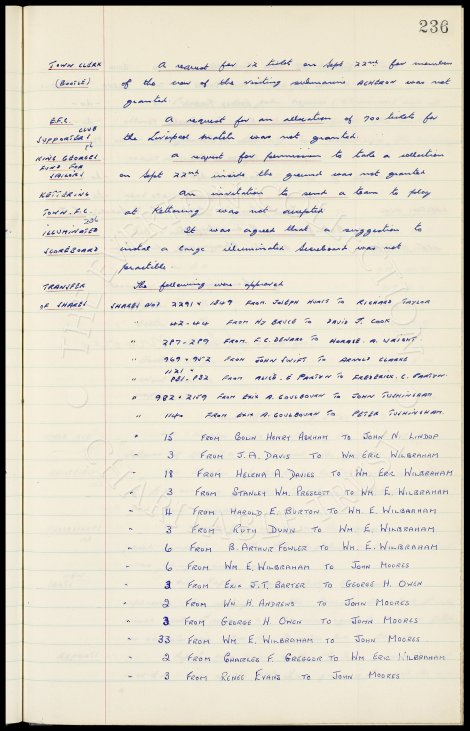 236
TOWN CLERK
(BOOTLE)
A request for 12 tickets on Sept 22nd for members
of the crew of the visiting submarine ACHERON was not
granted.
E.F.C.
SUPPORTERS CLUB
A request for an allocation of 700 tickets for
the Liverpool match was not granted.
KING GEORGES
FUND FOR
SAILORS
A request for permission to take a collection
on Sept 22nd inside the ground was not granted
KETTERING
TOWN. F.C.
An invitation to send a team to play
at Kettering was not accepted
236
ILLUMINATED
SCOREBOARD
It was agreed that a suggestion to
instal a large illuminated Scoreboard was not
practible.
TRANSFER
OF SHARES
The following were approved
SHARES NOS 2291 & 1849 FROM JOSEPH HURST TO RICHARD TAYLOR
" 42-44 FROM HY BRUCE TO DAVID J. COOK
" 287-289 FROM F.C. DENARO TO HORACE. A. WRIGHT.
" 969 & 952 FROM JOHN SWIFT TO ARNOLD CLARKE
" 1121 & 881-882 FROM ALICE. E PARTYN TO FREDERICK. C. PARTYN.
" 982 & 2159 FROM EXIX A. GOULBOURN TO JOHN TUSHINGHAM
" 1140 FROM EXIX A. GOULBOURN TO PETER TUSHINGHAM.
" 15 FROM COLIN HENRY ASKHAM TO JOHN N. LINDOP
" 3 FROM J.A. DAVIS TO WM ERIC WILBRAHAM
" 18 FROM HELENA A. DAVIES TO WM. ERIC WILBRAHAM
" 3 FROM STANLEY WM. PRESCOTT TO WM E. WILBRAHAM
" 4 FROM HAROLD E. BURTON TO WM. E. WILBRAHAM
" 3 FROM RUTH DUNN TO WM. E. WILBRAHAM
" 6 FROM B. ARTHUR FOWLER TO WM. E. WILBRAHAM
" 6 FROM WM E. WILBRAHAM TO JOHN MOORES
" 3 FROM EXIX J.T. BARTER TO GEORGE H. OWEN
" 2 FROM WM H. ANDREWS TO JOHN MOORES
" 3 FROM GEORGE H OWEN TO JOHN MOORES
" 33 FROM WM E. WILBRAHAM TO JOHN MOORES
" 2 FROM CHARLES F. GREGGOR TO WM ERIC WILBRAHAM
" 3 FROM RENEE EVANS TO JOHN MOORES